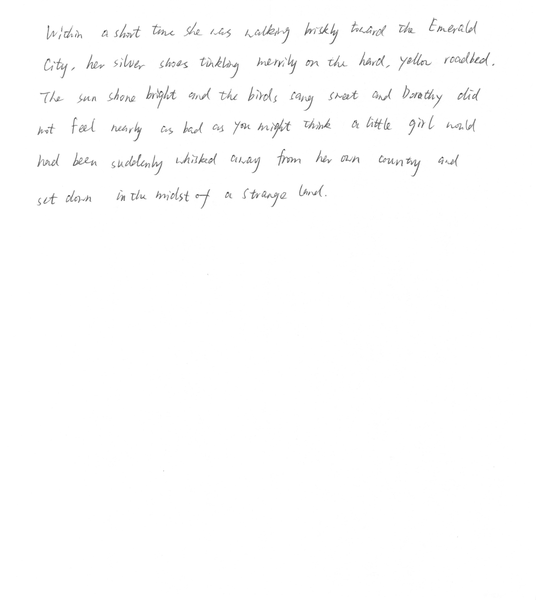 Within a short time she was walking briskly toward the Emerald
City, her silver shoes tinkling merrily on the hard, yellow roadbed.
The sun shone bright and the birds sang sweet and Dorothy did
not feel nearly as bad as you might think a little girl would
had been suddenly whisked away from her own country and
set down in the midst of a strange land.